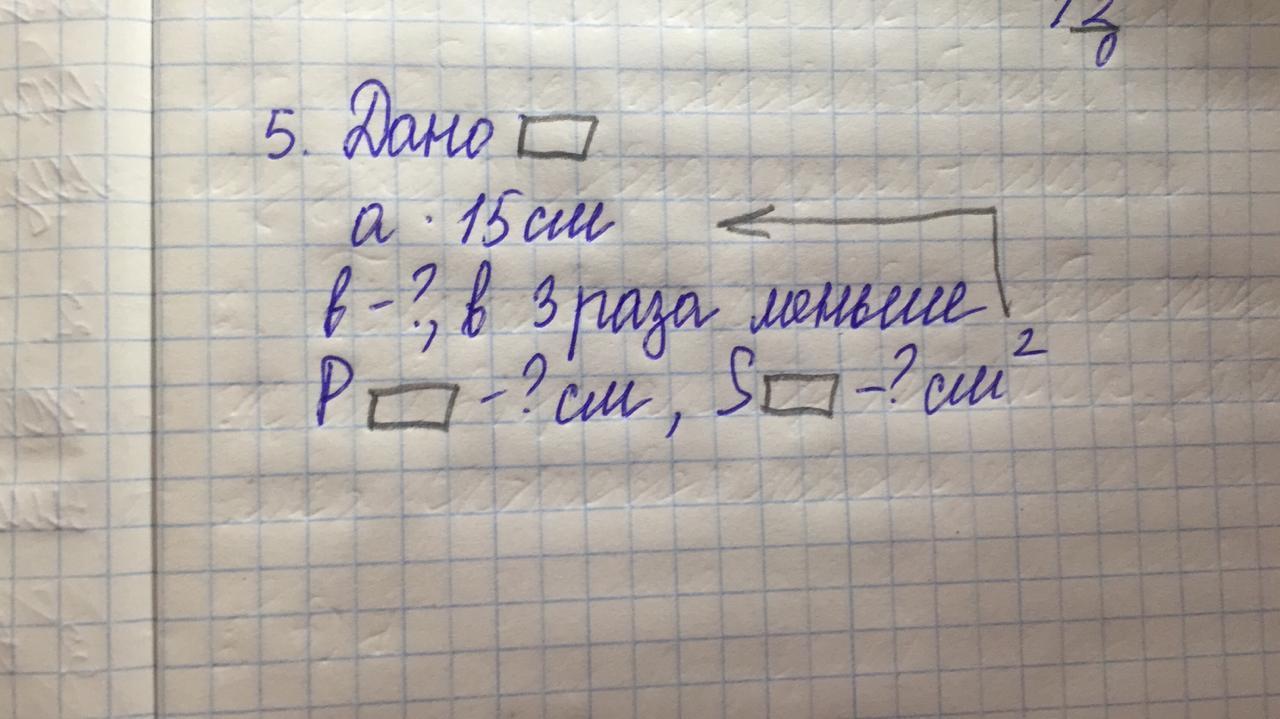 12
0
5. Дано ▭
а · 15 см
в - ?, в 3 раза меньше
Р ▭ - ? см, S ▭ - ? см²